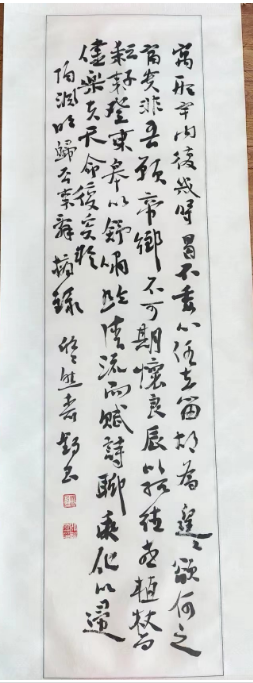 寓形宇內復幾時曷不委心任去留胡為遑々欲何之
富貴非吾願帝鄉不可期懷良辰以孤往或植杖而
耘耔登東皋以舒嘯臨清流而賦詩聊乘化以歸
盡樂夫天命復奚疑
陶淵明歸去來辭摘錄 書